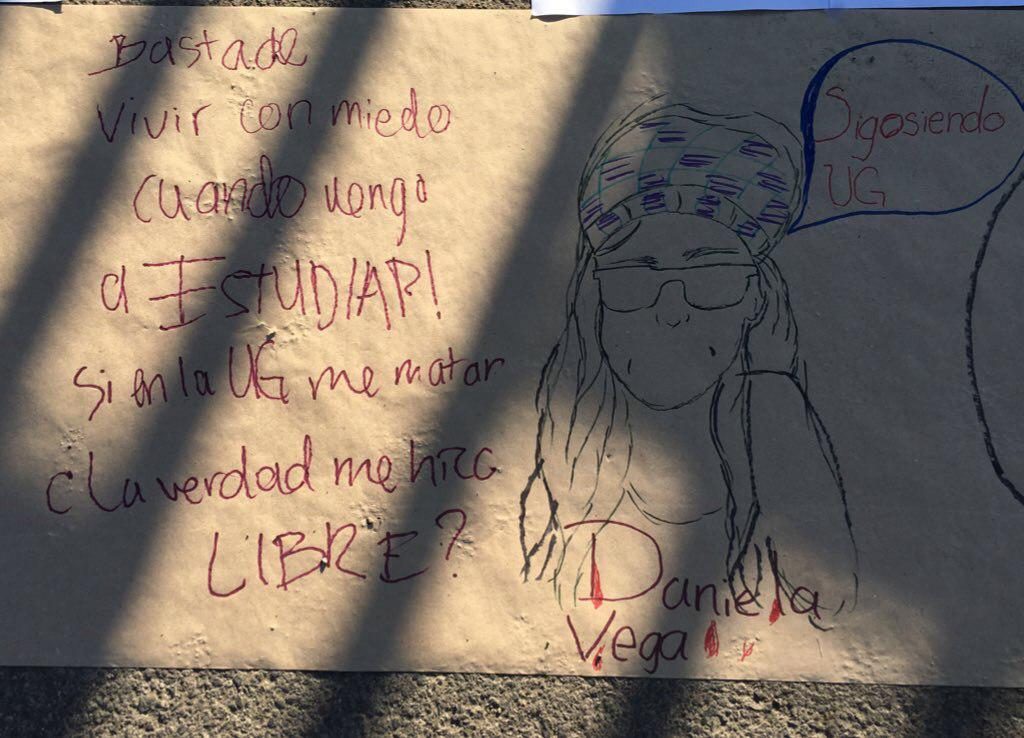 Basta de
vivir con miedo
cuando vengo
a ESTUDIAR!
Si en la UG me matar
¿La verdad me hizo
LIBRE?
Sigo siendo
UG
Daniela
Vega